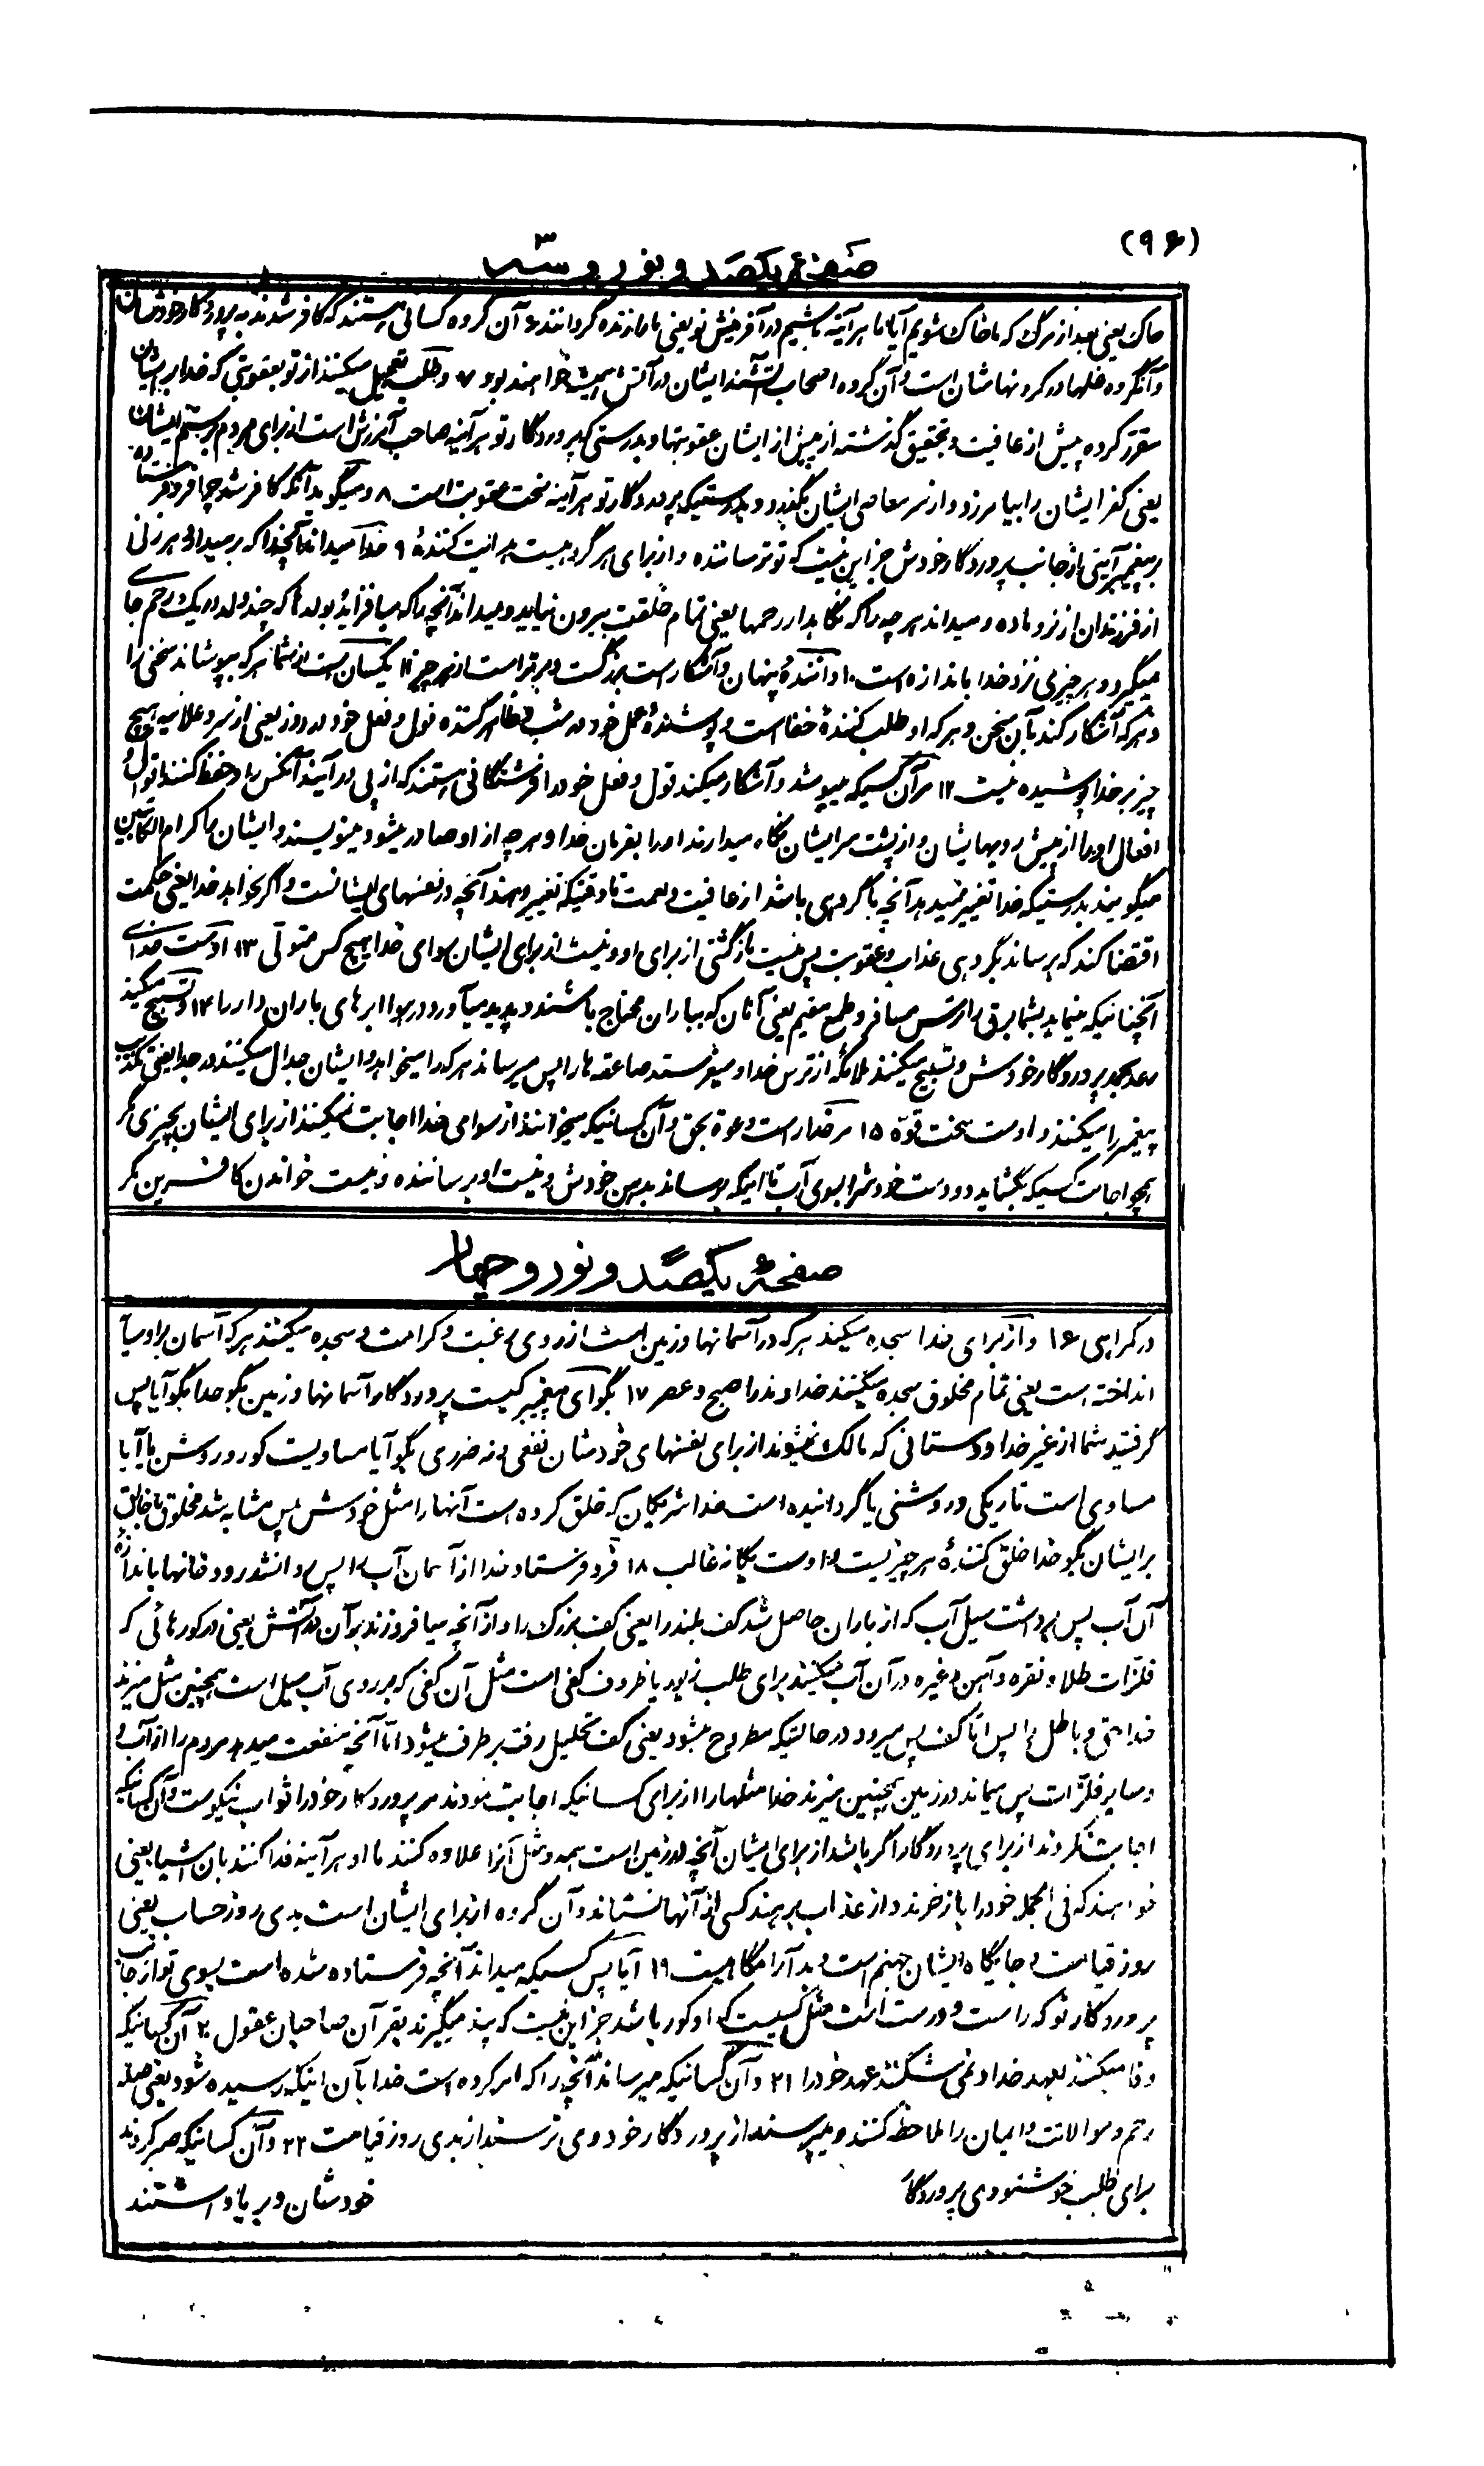 (۹۶)
صفحهٔ یکصد و نود و سه ۳
خاک یعنی بعد از مرگ که ما خاک شویم آیا ما هر آینه باشیم در آفرینش نو یعنی ما را زنده گردانند ۶ آن گروه کسانی هستند که کافر شدند به پروردگار خودشان
و آنگروه غلها در گردنهاشان است و آن گروه اصحاب آتشند ایشان در آتش همیشه خواهند بود ۷ و طلب تعجیل میکنند از تو بعقوبتی که خدا بر ایشان
مقرر کرده پیش از عافیت و بتحقیق گذشته از پیش از ایشان عقوبتها و بدرستی که پروردگار تو هر آینه صاحب آمرزش است از برای مردم بر ستم ایشان
یعنی کفر ایشان را بیامرزد و از سر معاصی ایشان بگذرد و بدرستیکه پروردگار تو هر آینه سخت عقوبت است ۸ و میگوید آنکه کافر شد چرا فرو فرستاده
بر پیغمبر آیتی از جانب پروردگار خودش جز این نیست که تو ترساننده و از برای هر گروهیست هدایت کنندهٔ ۹ خدا میداند آنچه را که بر میدارد هر زنی
از فرزندان از نر و ماده و میداند هر چه را که نگاهدارد رحمها یعنی تمام خلقت بیرون نیاید و میداند آنچه را که میافزاید بولدها که چند ولد در یک رحم جا
میگیرد و هر چیزی نزد خدا باندازه است ۱۰ داننده پنهان و آشکار است بزرگست و برتر است از هر چیز ۱۱ یکسان است از شما هر که بپوشاند سخن را
و هر که آشکار کند بآن سخن و هر که او طلب کنندهٔ خفا است و پوشندهٔ عمل خود در شب و ظاهر کننده قول و فعل خود در روز یعنی از سر و علانیه هیچ
چیز بر خدا پوشیده نیست ۱۲ مر آن کسیکه میپوشد و آشکار میکند قول و فعل خود را فرشتگانی هستند که از پی در آیند آنکس را و حفظ کنند اقوال و
افعال او را از پیش رویهایشان و از پشت سر ایشان نگاه میدارند او را بفرمان خدا و هر چه از او صادر میشود مینویسند و ایشان را کرام الکاتبین
میگویند بدرستیکه خدا تغییر نمیدهد آنچه با گروهی باشد از عافیت و نعمت تا وقتیکه تغییر دهند آنچه در نفسهای ایشانست و اگر بخواهد خدا یعنی حکمت
اقتضا کند که برساند بگروهی عذاب و عقوبت پس نیست بازگشتی از برای او و نیست از برای ایشان سوای خدا هیچ کس متولی ۱۳ اوست خدای
آنچنانیکه مینماید بشما برق را از ترس مسافر و طمع مقیم یعنی آنان که بباران محتاج باشند و پدید میآورد در هوا ابرهای باران دار را ۱۴ و تسبیح میکند
رعد بحمد پروردگار خودش و تسبیح میکنند ملائکه از ترس خدا و میفرستد صاعقه ها را پس میرساند هر که را میخواهد و ایشان جدال میکنند در خدا یعنی تکذیب
پیغمبر را میکنند و اوست سخت قوّه ۱۵ مر خدا راست دعوة بحق و آن کسانیکه میخوانند از سوای خدا اجابت نمیکنند از برای ایشان بچیزی مگر
همچو اجابت کسیکه بگشاید دو دست خود را بسوی آب تا اینکه برساند بدهن خودش و نیست او برساننده و نیست خواندن کافرین مگر
صفحهٔ یکصد و نود و چهار
در گمراهی ۱۶ و از برای خدا سجده میکند هر که در آسمانها و زمین است از روی رغبت و کراهت و سجده میکند هر که آسمان بر او سایه
انداخته است یعنی تمام مخلوق سجده میکنند خداوند را صبح و عصر ۱۷ بگو ای پیغمبر کیست پروردگار آسمانها و زمین بگو خدا بگو آیا پس
گرفتید شما از غیر خدا دوستانی که مالک نمیشوند از برای نفسهای خودشان نفعی و نه ضرری بگو آیا مساویست کور و روشن یا آیا
مساوی است تاریکی و روشنی یا گردانیده است خدا شریکان که خلق کرده است آنها را مثل خودش پس مشابه شد مخلوق با خالق
بر ایشان بگو خدا خلق کنندهٔ هر چیزیست و اوست یگانه غالب ۱۸ فرو فرستاد خدا از آسمان آب را پس روانشد رودخانها باندازهٔ
آن آب پس برداشت سیل آب که از باران حاصل شد کف بلند را یعنی کف بزرگ را و از آنچه میافروزند بر آن در آتش یعنی در کورهائی که
فلزات طلا و نقره و آهن و غیره در آن آب میکنند برای طلب زیور یا ظروف کفی است مثل آن کفی که بر روی آب سیل است همچنین مثل میزند
خدا حق و باطل را پس اما کف پس میرود در حالتیکه مطروح میشود یعنی کف تحلیل رفته بر طرف میشود امّا آنچه منفعت میدهد مردم را از آب و
و سایر فلزات پس میماند در زمین همچنین میزند خدا مثلها را از برای کسانیکه اجابت نمودند مر پروردگار خود را ثواب نیکوست و آن کسانیکه
اجابت نکردند از برای پروردگار اگر باشد از برای ایشان آنچه در زمین است همه و مثل آنرا علاوه کنند با او هر آینه فدا کنند بان اشیا یعنی
خواهند که فی الجمله خود را باز خرند و از عذاب برهند کسی از آنها نستاند و آن گروه از برای ایشان است بدی روز حساب یعنی
روز قیامت و جایگاه ایشان جهنم است و بد آرامگاهیست ۱۹ آیا پس کسیکه میداند آنچه فرستاده شده است بسوی تو از جانب
پروردگار تو که راست و درست است مثل کسیست که او کور باشد جز این نیست که پند میگیرند بقرآن صاحبان عقول ۲۰ آن کسانیکه
وفا میکنند بعهد خدا و نمی شکنند عهد خود را ۲۱ و آن کسانیکه میرسانند آنچه را که امر کرده است خدا بآن اینکه رسیده شود یعنی صله
رحم و موالات و ایمان را ملاحظه کنند و میترسند از پروردگار خود و می ترسند از بدی روز قیامت ۲۲ و آن کسانیکه صبر کردند
برای طلب خوشنودی پروردگار خودشان و بر پا داشتند